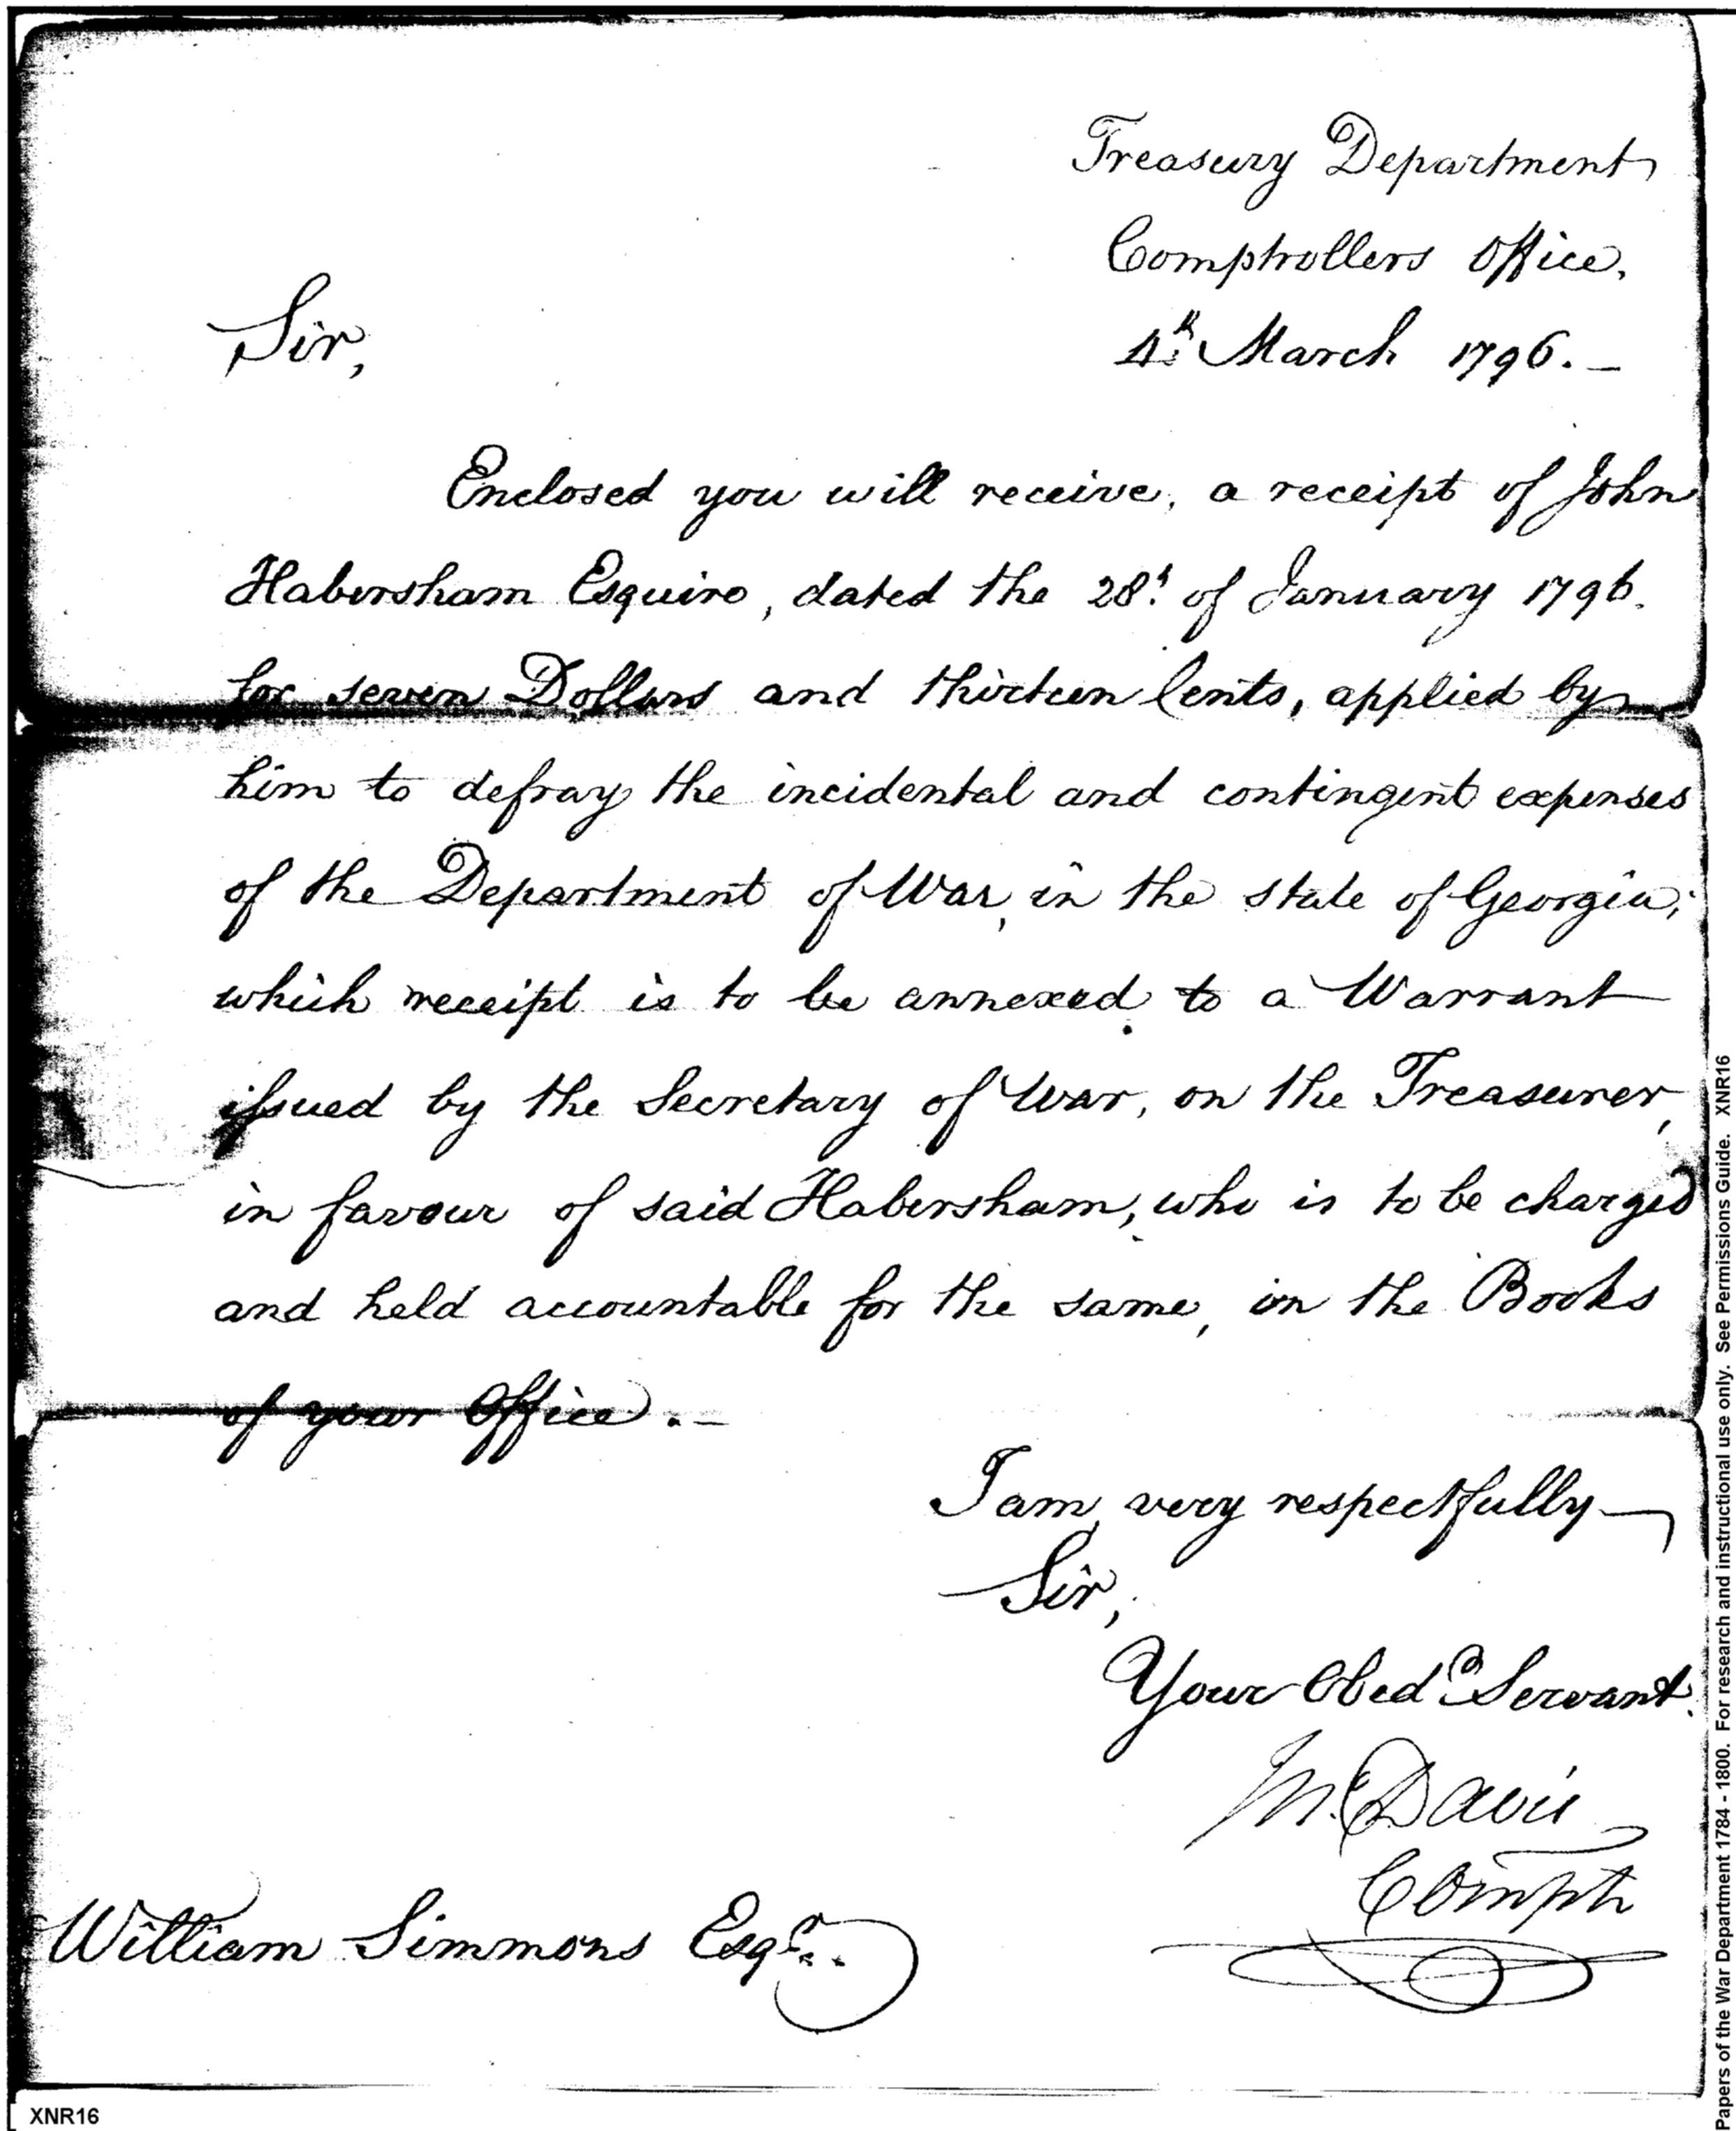 Treasury Department
Comptrollers Office.
4th March 1796. _
Sir,
Enclosed you will receive, a receipt of John
Habersham Esquire, dated the 28t. of January 1796.
for seven Dollars and thirteen Cents, applied by
him to defray the incidental and contingent expenses
of the Department of War, in the state of Georgia;
which receipt is to be annexed to a Warrant
issued by the Secretary of War, on the Treasurer,
in favour of said Habersham, who is to be charged
and held accountable for the same, in the Books
of your Office. _
I am very respectfully
Sir,
Your Obed Servant.
Davis
Compt
William Simmons Esqr.
XNR16
Papers of the War Department 1784 - 1800. For research and instructional use only. See Permissions Guide. XNR16